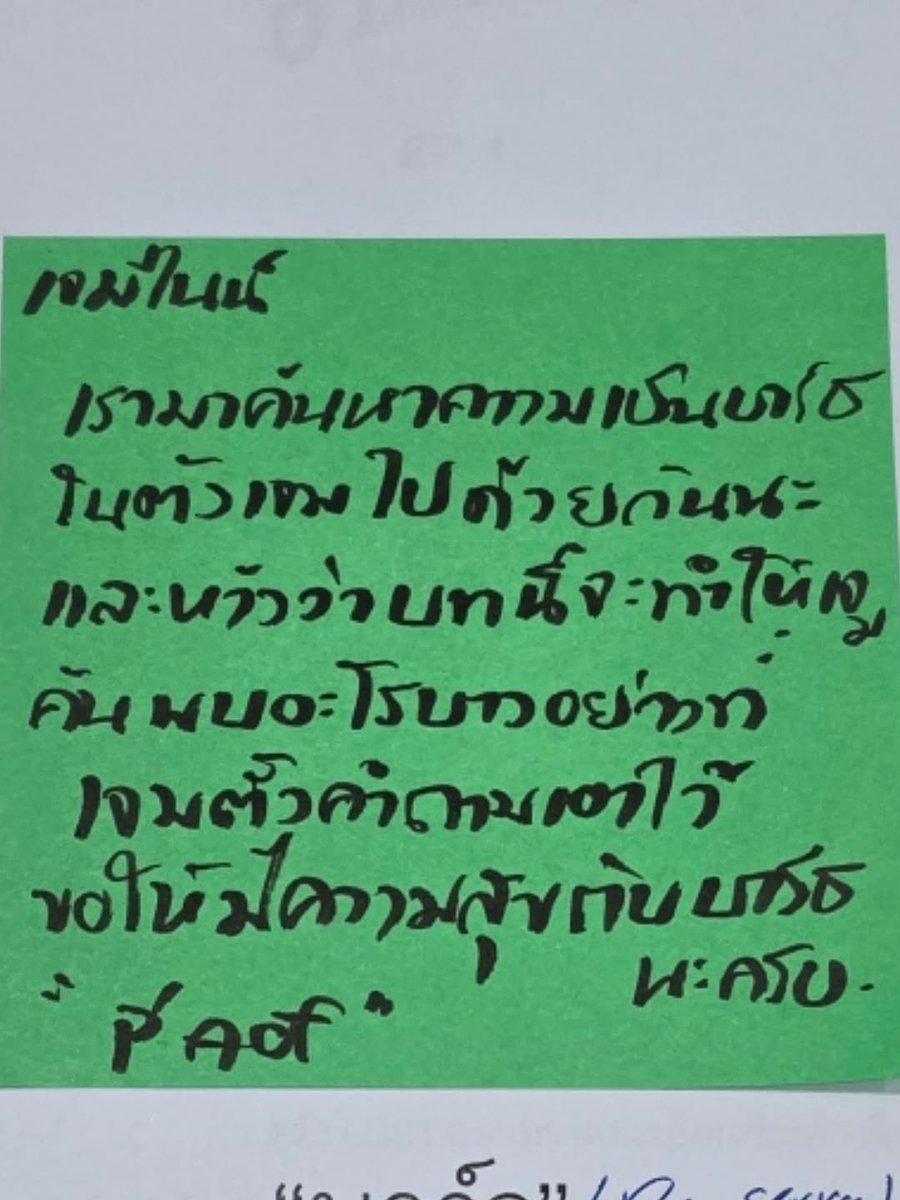 เจมีไนน์
เรามาค้นหาความเป็นบาร์ธ
ในตัวเจมไปด้วยกันนะ
และหวังว่าบทนี้จะทำให้เจม
ค้นพบอะไรบางอย่างที่
เจมตั้งคำถามเอาไว้
ขอให้มีความสุขกับบาร์ธ
นะครับ.
"พี่คอส"